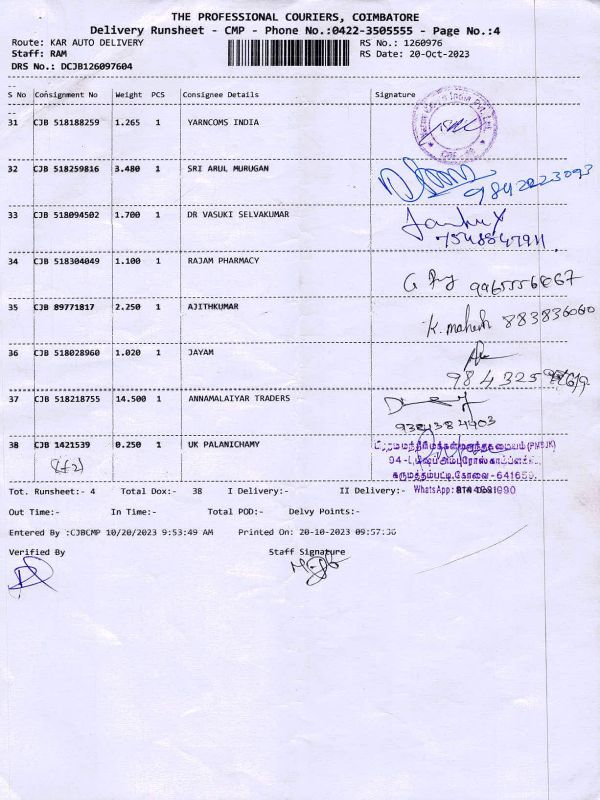 THE PROFESSIONAL COURIERS, COIMBATORE
Delivery Runsheet - CMP - Phone No.:0422-3505555 - Page No.:4
Route: KAR AUTO DELIVERY RS No.: 1260976
Staff: RAM RS Date: 20-Oct-2023
DRS No.: DCJB126097604
S No Consignment No Weight PCS Consignee Details Signature
31 CJB 518188259 1.265 1 YARNCOMS INDIA
32 CJB 518259816 3.480 1 SRI ARUL MURUGAN
9842223093
33 CJB 518094502 1.700 1 DR VASUKI SELVAKUMAR
7548847911
34 CJB 518304049 1.100 1 RAJAM PHARMACY
35 CJB 89771817 2.250 1 AJITHKUMAR K. mahesh
36 CJB 518028960 1.020 1 JAYAM
984325
37 CJB 518218755 14.500 1 ANNAMALAIYAR TRADERS
9384384403
38 CJB 1421539 0.250 1 UK PALANICHAMY
கருமத்தம்பட்டி,கோவை-641659.
Tot. Runsheet:- 4 Total Dox:- 38 I Delivery:- II Delivery:- WhatsApp:
Out Time:- In Time:- Total POD:- Delvy Points:-
Entered By :CJBCMP 10/20/2023 9:53:49 AM Printed On: 20-10-2023 09:57:36
Verified By Staff Signature